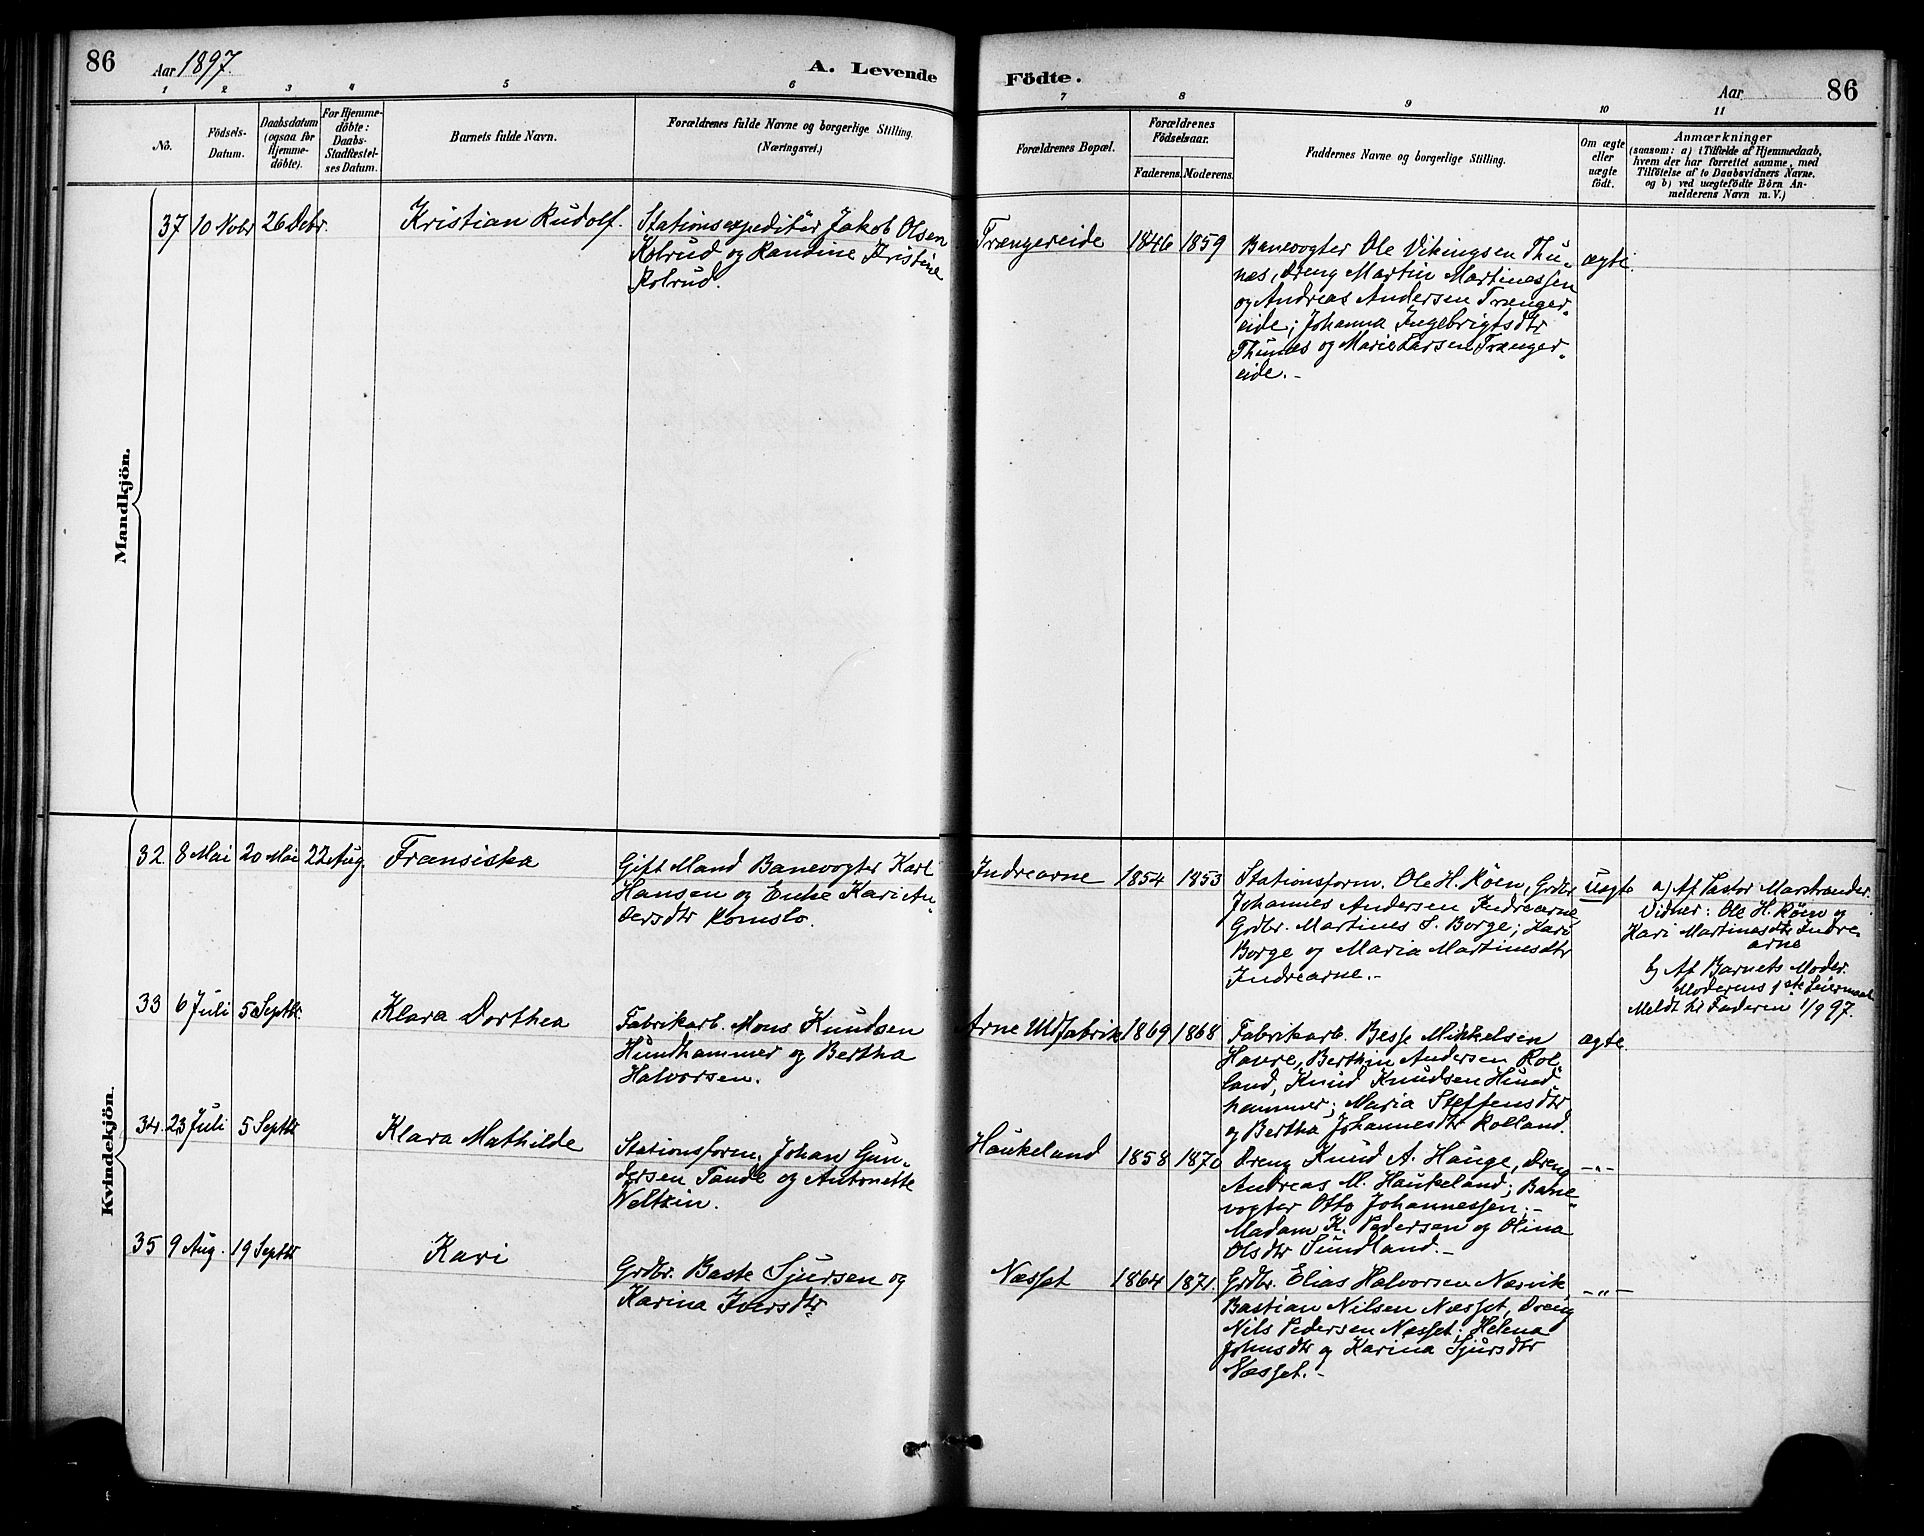 86
Aar 1897.
A. Levende
Födte.
Aar
86
1 2 3 4 5 6 7 8 9 10 11
No.
Födsels-
Datum.
Daabsdatum
(ogsaa for
Hjemme-
döbte).
For Hjemme-
döbte:
Daabs-
Stadfæstel-
ses Datum.
Barnets fulde Navn.
Forældrenes fulde Navne og borgerlige Stilling.
(Næringsvei.)
Forældrenes Bopæl.
Forældrenes
Födselsaar.
Faderens. Moderens.
Faddernes Navne og borgerlige Stilling.
Om ægte
eller
uægte
födt.
Anmærkninger
(saasom: a) i Tilfælde af Hjemmedaab,
hvem der har forrettet samme, med
Tilföielse af to Daabsvidners Navne.
og b) ved uægtefödte Börn An-
melderens Navn m. V.)
Mandkjön.
37 10 Novbr 26 Debr.
Kristian Rudolf.
Stationsexpeditör Jakob Olsen
Kolrud og Randine Kristine
Kolrud.
Trængereide
1846 1859
Banevogter Ole Vikingsen Thu-
nes, Dreng Martin Martinessen
og Andreas Andersen Trænger-
eide; Johanna Ingebrigtsdtr
Thunes og Marie Larsen Trænger-
eide.-
ægte.
Kvindekjön.
32 8 Mai 20 Mai 22 Aug.
Fransiska
Gift Mand Banevogter Karl
Hansen og Enke Kari An-
dersdtr Romslo.
Indrearne
1854 1853
Stationsform. Ole H. Röen, Grdbr.
Johannes Andersen Indrearne,
Grdbr. Martines S. Borge; Kari
Borge og Maria Martinesdtr
Indrearne.-
Uægte
a) Af Pastor Marstrander.
Vidner: Ole H. Röen og
Kari Martinesdtr Indre-
arne
b) Af Barnets Moder.
Moderens 1ste Leiermaal
Meldt til Faderen 1/9 97.
33 6 Juli 5 Septbr.
Klara Dorthea
Fabrikarb. Mons Knudsen
Hundhammer og Bertha
Halvorsen.
Arne Uldfabrik
1869 1868
Fabrikarb. Besse Mikkelsen
Havre, Berthin Andersen Rol-
land, Knud Knudsen Hund-
hammer; Maria Steffensdtr
og Bertha Johannesdtr Rolland.
ægte.
34. 23 Juli 5 Septbr
Klara Mathilde
Stationsform. Johan Gun-
dersen Tande og Antonette
Weltzin.
Haukeland
1858 1870
Dreng Knud A. Hauge, Dreng
Andreas M. Haukeland; Bane-
vogter Otto Johannessen;-
Madam K. Pedersen og Olina
Olsdtr Sundland.-
-"-
35 9 Aug. 19 Septbr
Kari
Grdbr. Baste Sjursen og
Karina Iversdtr
Næsset
1864 1871.
Grdbr. Elias Halvorsen Nærvik,
Bastian Nilsen Næsset, Dreng
Nils Pedersen Næsset; Helena
Johnsdtr og Karina Sjursdtr
Næsset.-
-"-